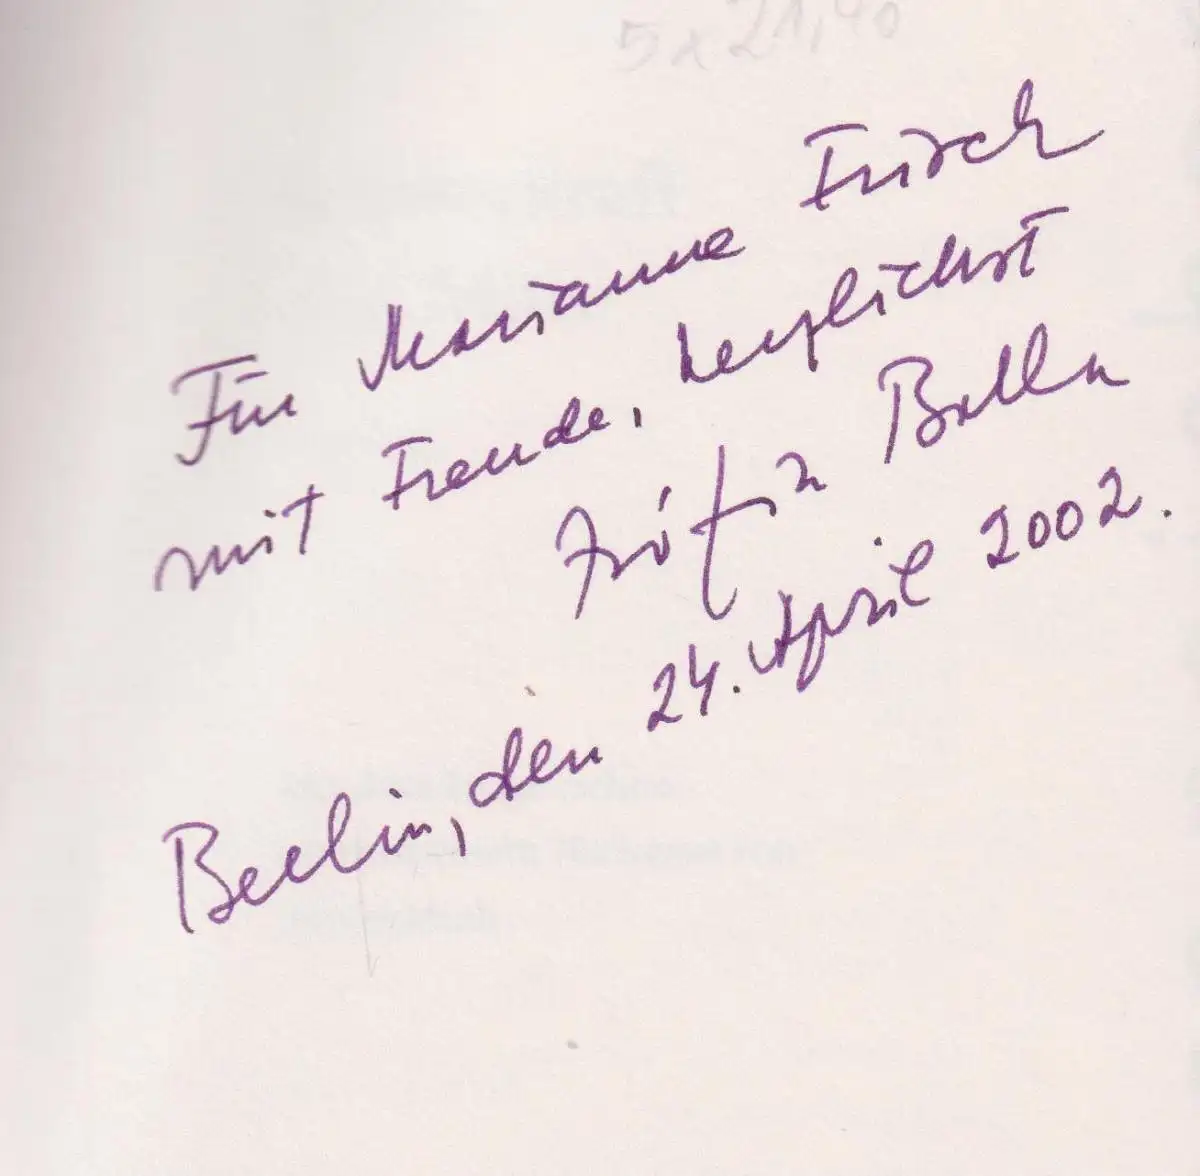 5 x 21,40
Für Marianne Frisch
mit Freude, herzlichst
Zsófia Balla
Berlin, den 24. April 2002.